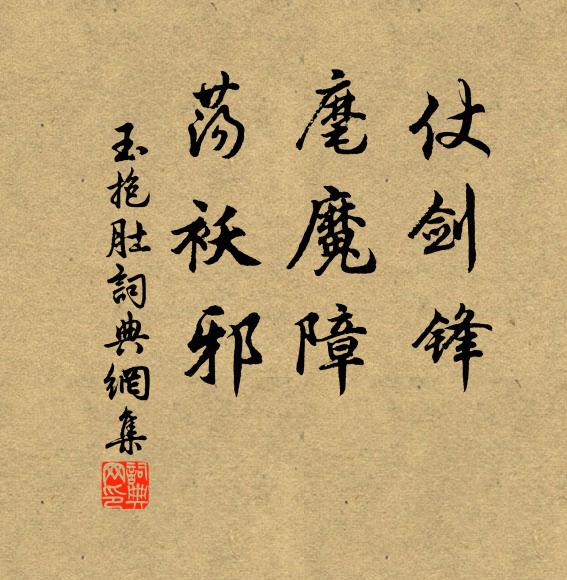 仗剑锋
麾魔障
荡袄邪
玉抱肚詞典網集
詞典
网印